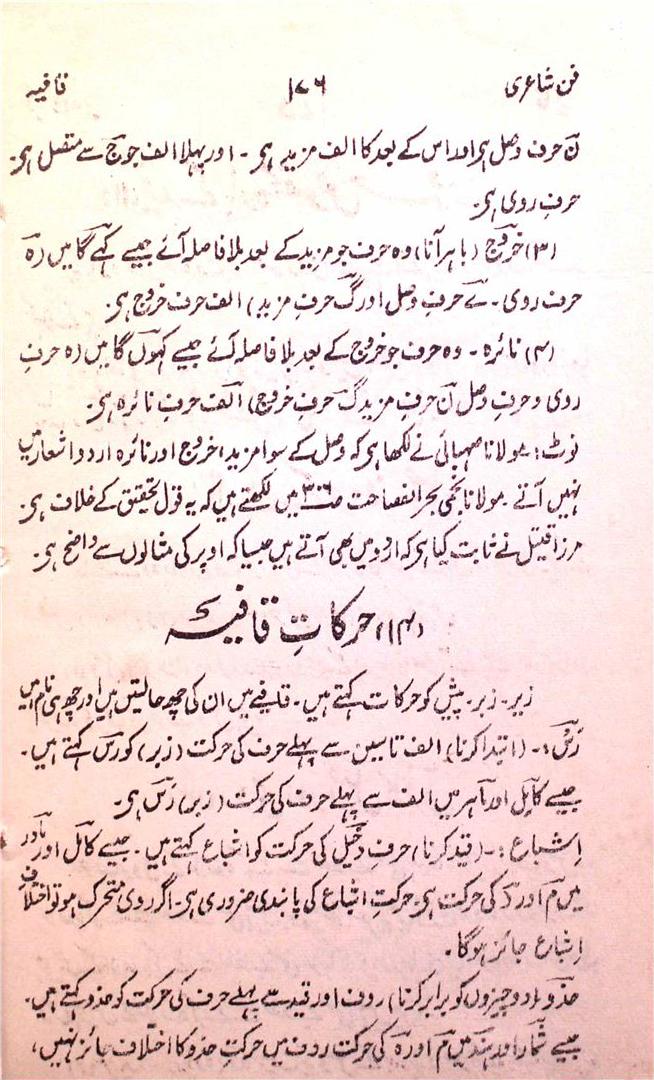 فن شاعری ۱۷۶ قافیہ
نؔ حرف وصل ہی اور اس کے بعد کا الف مزید ہی۔ اور پہلا الف جو جؔ سے متصل ہی۔
حرفِ روی ہی۔
(۳) خروج (باہر آنا) وہ حرف جو مزید کے بعد بلا فاصلہ آئے جیسے کہے گا میں (ہ
حرف روی۔ ےؔ حرفِ وصل اور گؔ حرفِ مزید) الف حرف خروج ہی۔
(۴) نائرہ۔ وہ حرف جو خروج کے بعد بلا فاصلہ آئے جیسے کہوں گا میں (ہ حرفِ
روی و حرفِ وصل نؔ حرفِ مزید گؔ حرفِ خروج) الفؔ حرفِ نائرہ ہی۔
نوٹ: مولانا صہبائی نے لکھا ہی کہ وصل کے سوا مزید، خروج اور نائرہ اردو اشعار میں
نہیں آتے۔ مولانا نجمی بحر الفصاحت صـ۳۰۶ میں لکھتے ہیں کہ یہ قول تحقیق کے خلاف ہی۔
مرزا قتیل نے ثابت کیا ہی کہ اردو میں بھی آتے ہیں جیسا کہ اوپر کی مثالوں سے واضح ہی۔
(۱۴) حرکاتِ قافیہ
زیر۔ زبر۔ پیش کو حرکات کہتے ہیں۔ قافیے میں ان کی چھ حالتیں ہیں اور چھ ہی نام ہیں
رَسّ:۔ (ابتدا کرنا) الف تاسیس سے پہلے حرف کی حرکت (زبر) کو رسؔ کہتے ہیں۔
جیسے کامِل اور ماہر میں الف سے پہلے حرف کی حرکت (زبر) رَس ہی۔
اِشباع:۔ (قید کرنا) حرفِ دخیل کی حرکت کو اشباع کہتے ہیں۔ جیسے کامل اور نادر
میں مؔ اور دؔ کی حرکت ہی۔ حرکتِ اشباع کی پابندی ضروری ہی۔ اگر روی متحرک ہو تو اختلافِ
اِشباع جائز ہوگا۔
حذو (دو چیزوں کو برابر کرنا) ردف اور قید سے پہلے حرف کی حرکت کو حذو کہتے ہیں۔
جیسے شمار اور ہند میں مؔ اور ہؔ کی حرکت ردف میں حرکتِ حذو کا اختلاف جائز نہیں،